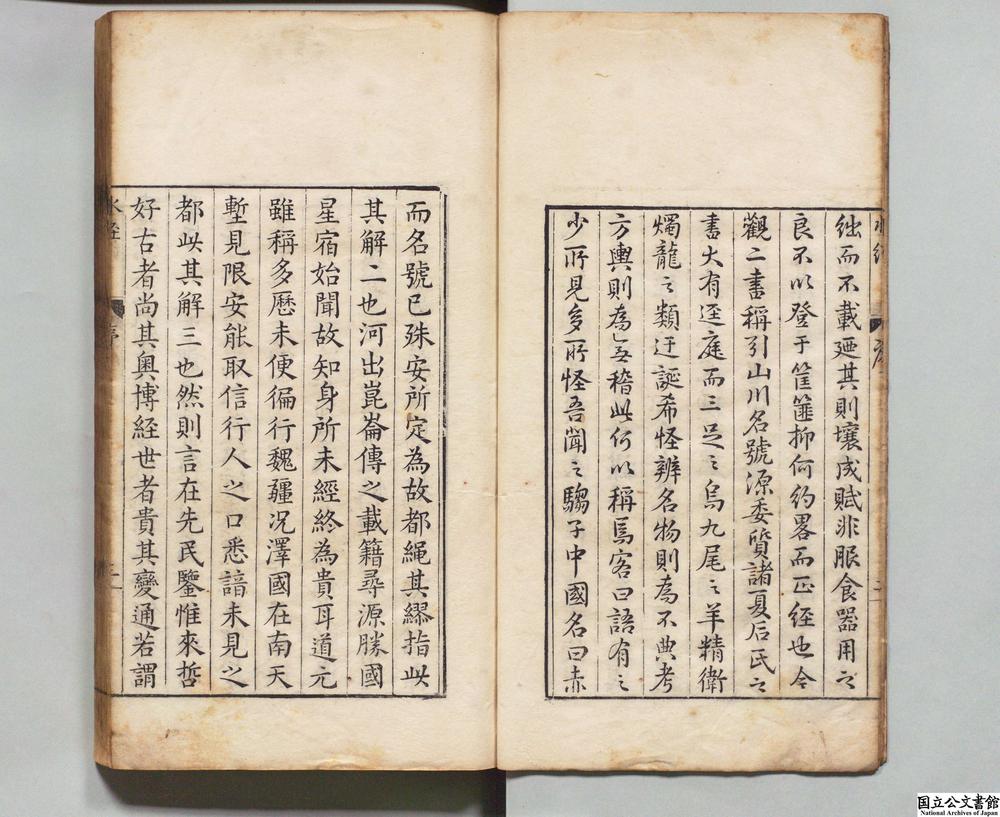 絀而不載迺其則壤成賦非服食器用之
良不以登于筐篚抑何約畧而正經也今
觀二書稱引山川名號源委質諸夏后氏之
書大有逕庭而三足之烏九尾之羊精衛
燭龍之類迂誕希怪辨名物則為不典考
方輿則為無稽此何以稱焉客曰語有之
少所見多所怪吾聞之騶子中國名曰赤
而名號已殊安所定為故都繩其繆指此
其解二也河出崑崙傳之載籍尋源勝國
星宿始聞故知身所未經終為貴耳道元
雖稱多歷未便徧行魏疆况澤國在南天
塹見限安能取信行人之口悉諳未見之
都此其解三也然則言在先民鑒惟來哲
好古者尚其奥博経世者貴其變通若謂
水經
序
国立公文書館
National Archives of Japan